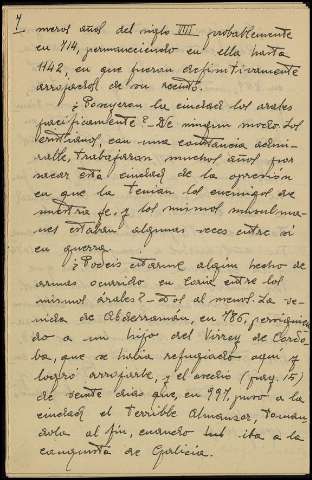 7
meros años del siglo VIII probablemente
en 714, permaneciendo en ella hasta
1142, en que fueron definitivamente
arrojados de su recinto.
¿Poseyeron la ciudad los árabes
pacíficamente? - De ningún modo. Los
cristianos, con una constancia admi-
rable, trabajaron muchos años por
sacar esta ciudad de la opresión
en que la tenían los enemigos de
nuestra fe, y los mismos musulma-
nes estaban algunas veces entre sí
en guerra.
¿Podéis citarme algún hecho de
armas ocurrido en Coria entre los
mismos árabes? - Dos al menos. La ve-
nida de Abderramán, en 786, persiguien-
do a un hijo del Virrey de Córdo-
ba, que se había refugiado aquí y
logró arrojarle, y el asedio (pag. 15)
de veinte días que, en 997, puso a la
ciudad el terrible Almanzor, toman-
dola al fin, cuando iba a la
conquista de Galicia.